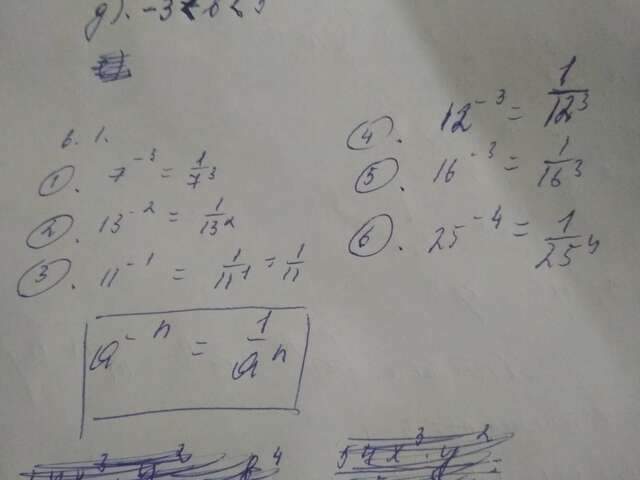 g). -3 < b < 3
в. 1.
①. 7⁻³ = 1/7³
②. 13⁻² = 1/13²
③. 11⁻¹ = 1/11¹ = 1/11
a⁻ⁿ = 1/aⁿ
④. 12⁻³ = 1/12³
⑤. 16⁻³ = 1/16³
⑥. 25⁻⁴ = 1/25⁴
57x³·y²